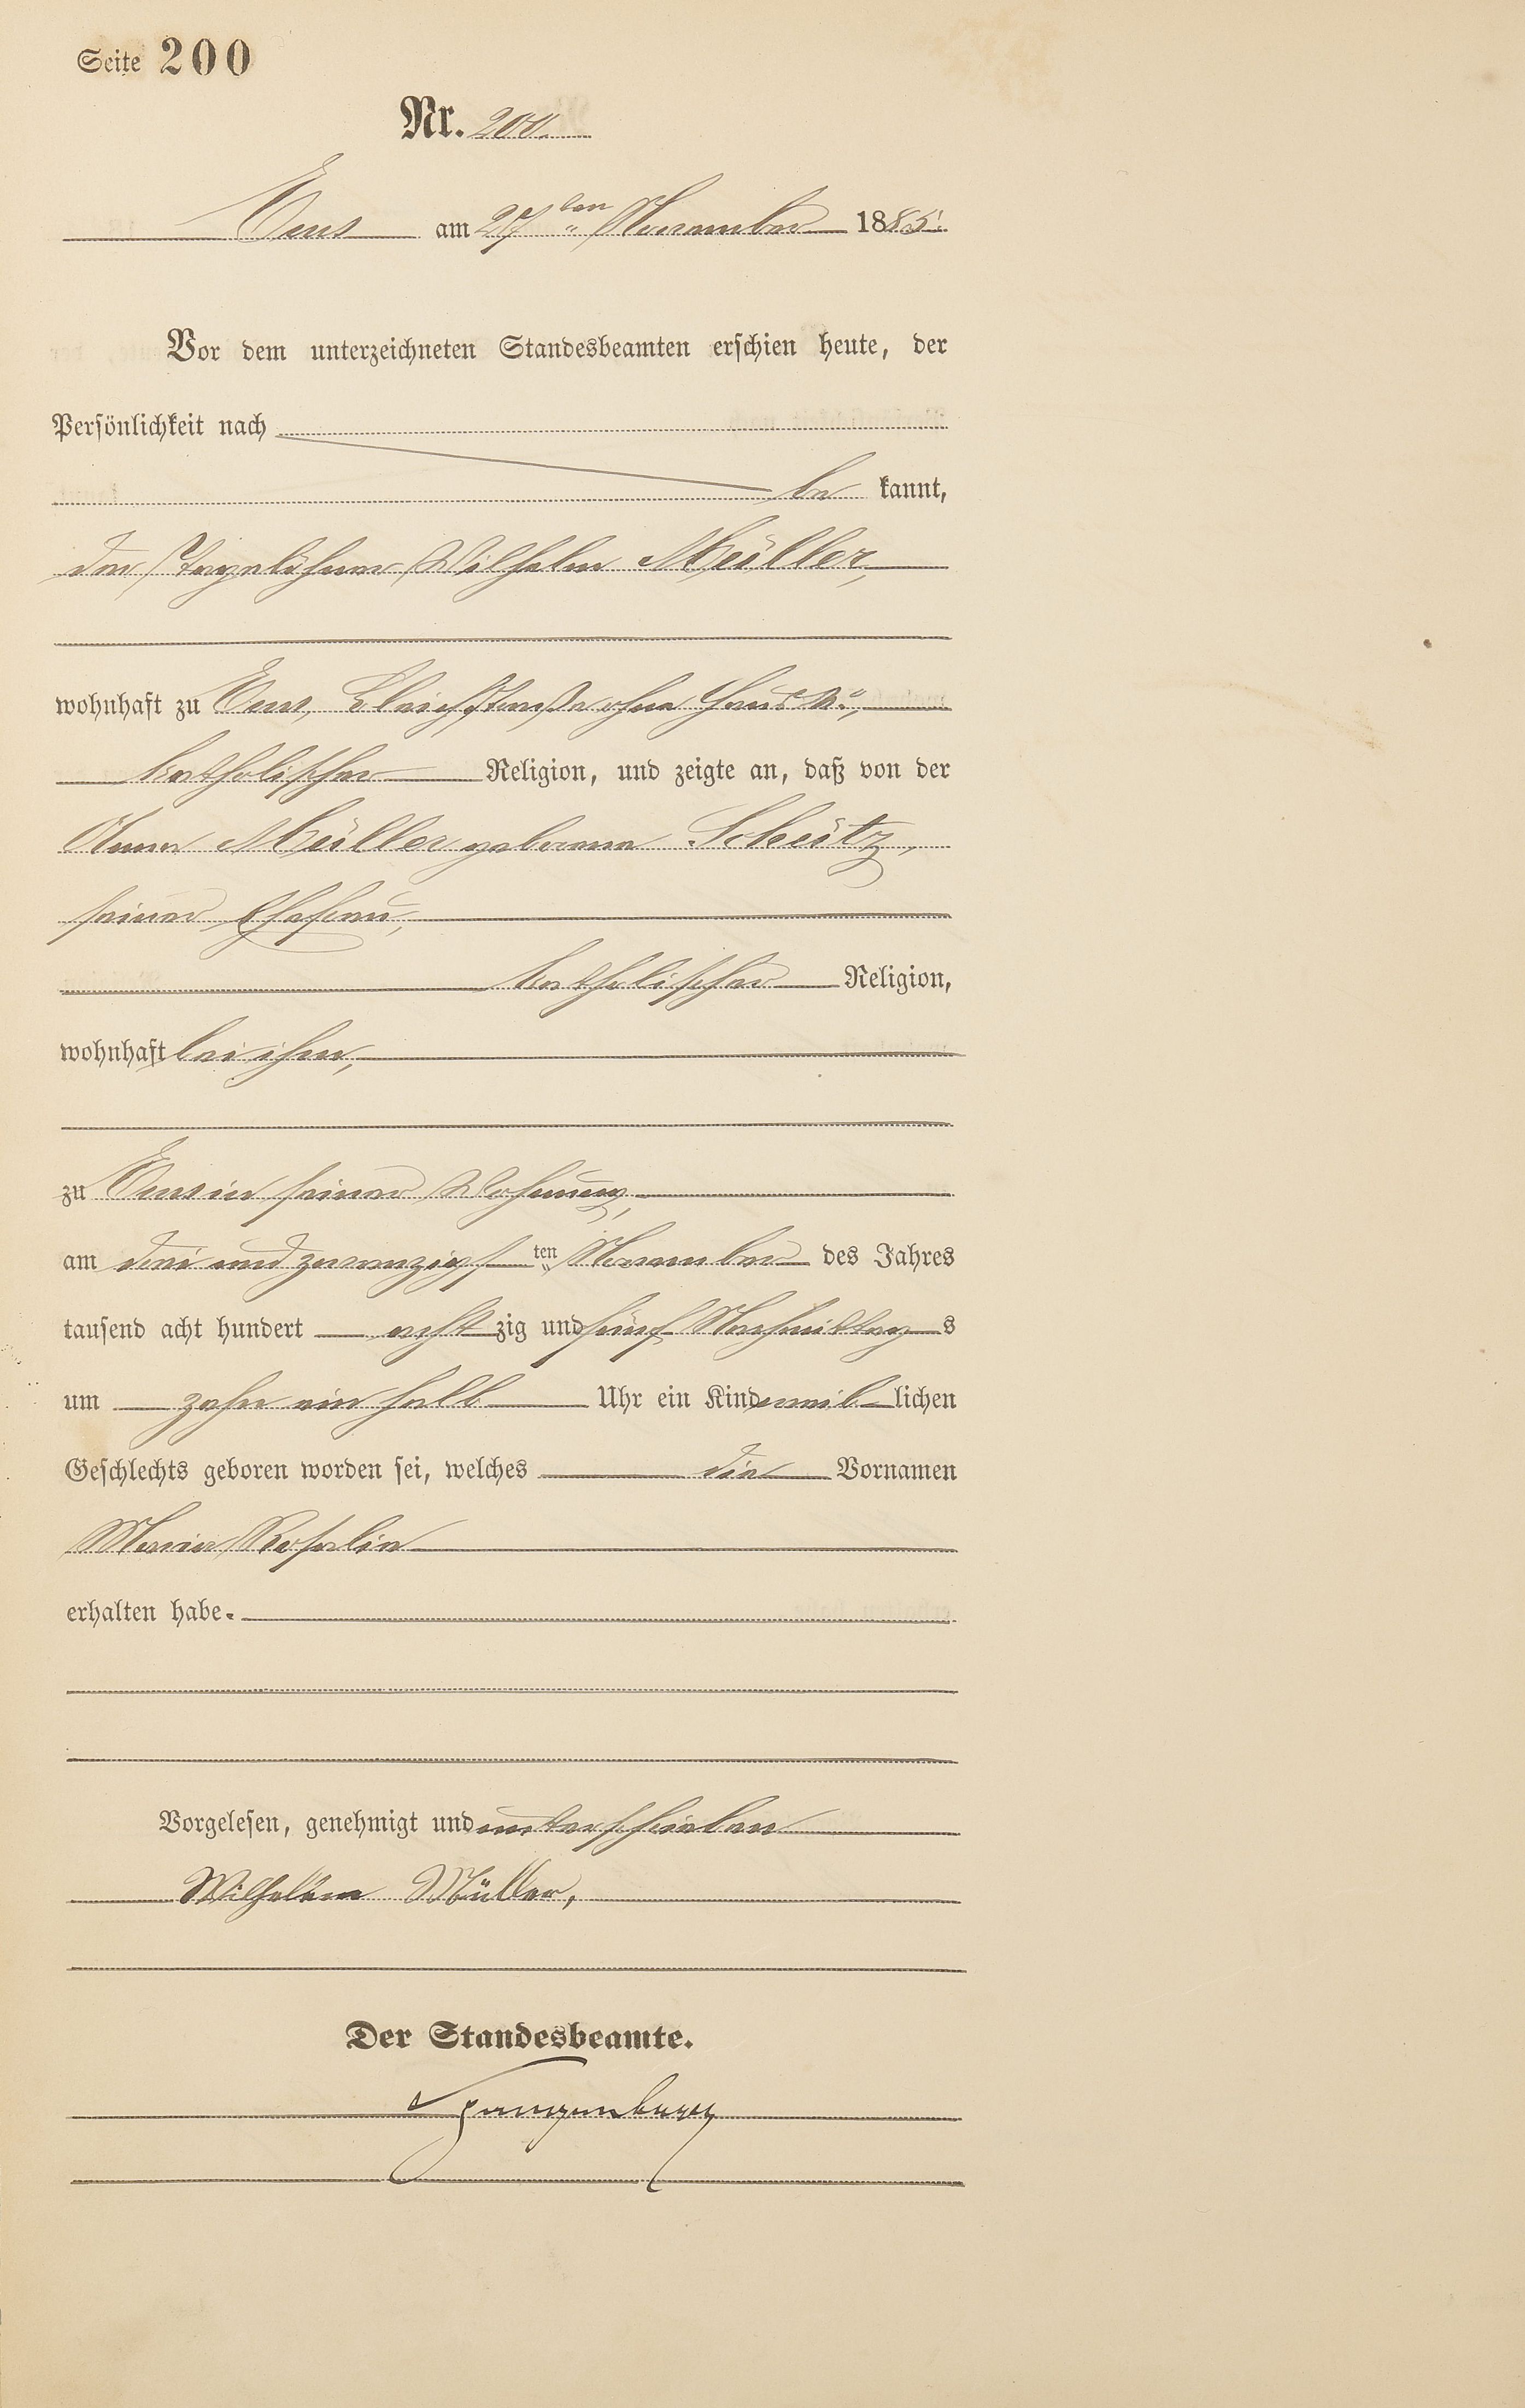 Seite 200
Nr. 200.
Ems am 27ten November 1885.
Vor dem unterzeichneten Standesbeamten erschien heute, der
Persönlichkeit nach
be kannt,
der Tagelöhner Wilhelm Müller,
wohnhaft zu Ems, Bleichstraße ohne Haus No,
katholischer Religion, und zeigte an, daß von der
Anna Müller geborene Schütz,
seiner Ehefrau,
katholischer Religion,
wohnhaft bei ihm,
zu Ems in seiner Wohnung,
am drei und zwanzigsten November des Jahres
tausend acht hundert achtzig und fünf Nachmittags
um zehn ein halb Uhr ein Kind weiblichen
Geschlechts geboren worden sei, welches die Vornamen
Maria Rosalia
erhalten habe.
Vorgelesen, genehmigt und unterschrieben
Wilhelm Müller,
Der Standesbeamte.
Spangenberg